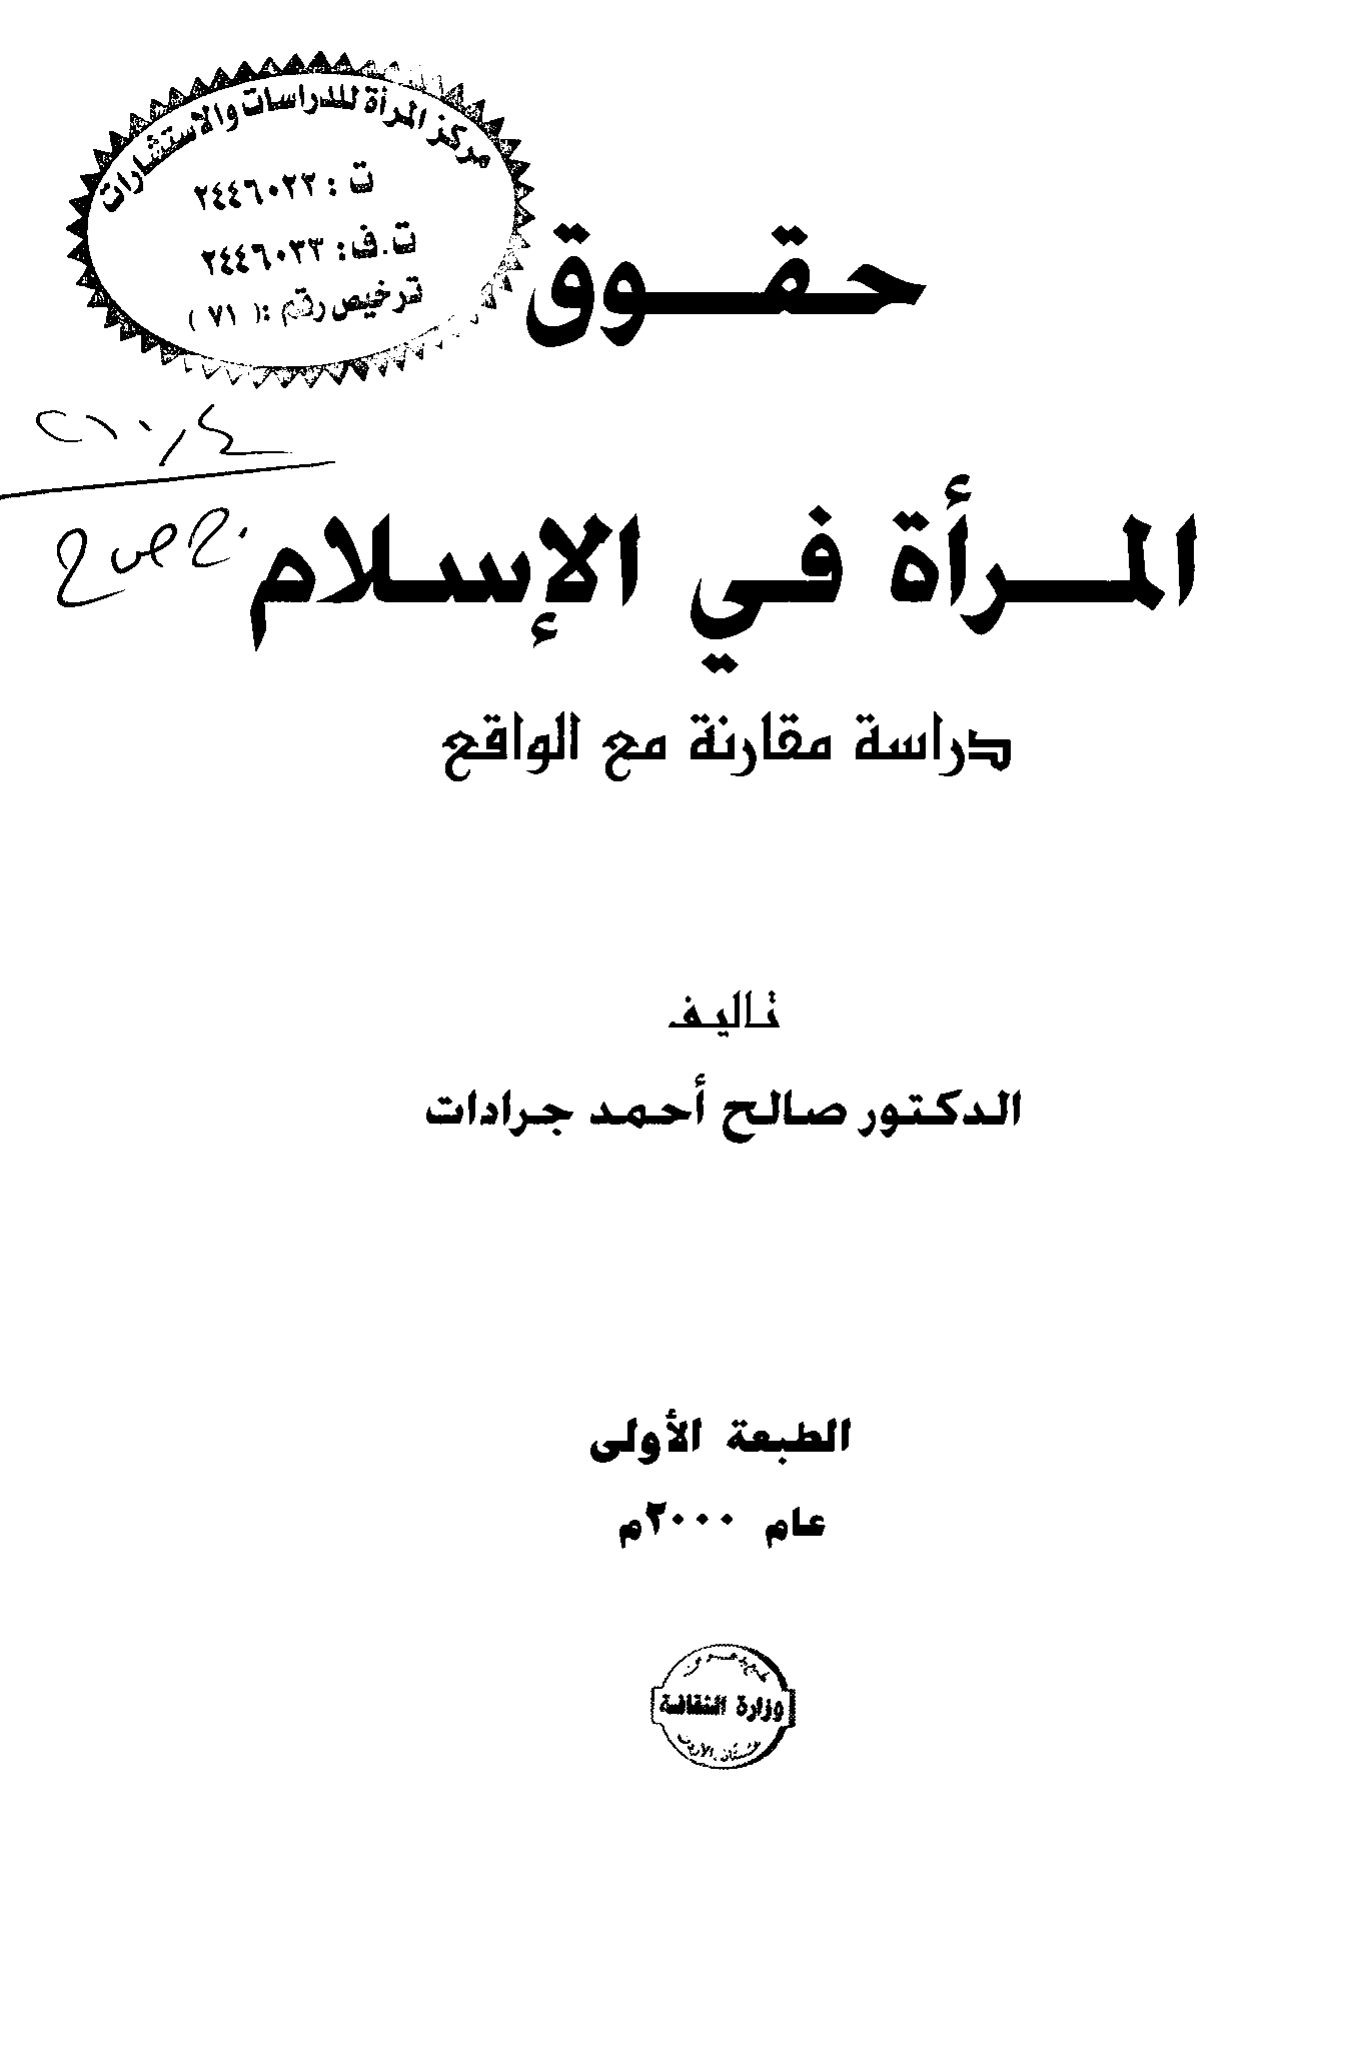 مركز المرأة للدراسات والاستشارات
ت : ٢٤٤٦٠٢٢
ت.ف: ٢٤٤٦٠٣٣
ترخيص رقم :( ٧١ )
حقوق
المرأة في الإسلام
دراسة مقارنة مع الواقع
تاليف
الدكتور صالح أحمد جرادات
الطبعة الأولى
عام ٢٠٠٠م
طبع بدعم من
وزارة الثقافة
عمان الأردن